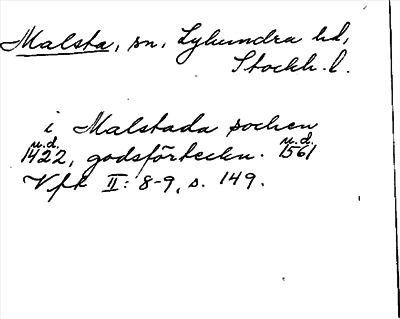 Malsta, sn, Lyhundra hd,
Stockh. l.
i Malstada sochen
u.d. u.d.
1422, godsförteckn. 1561
Vfk II: 8-9, s. 149.